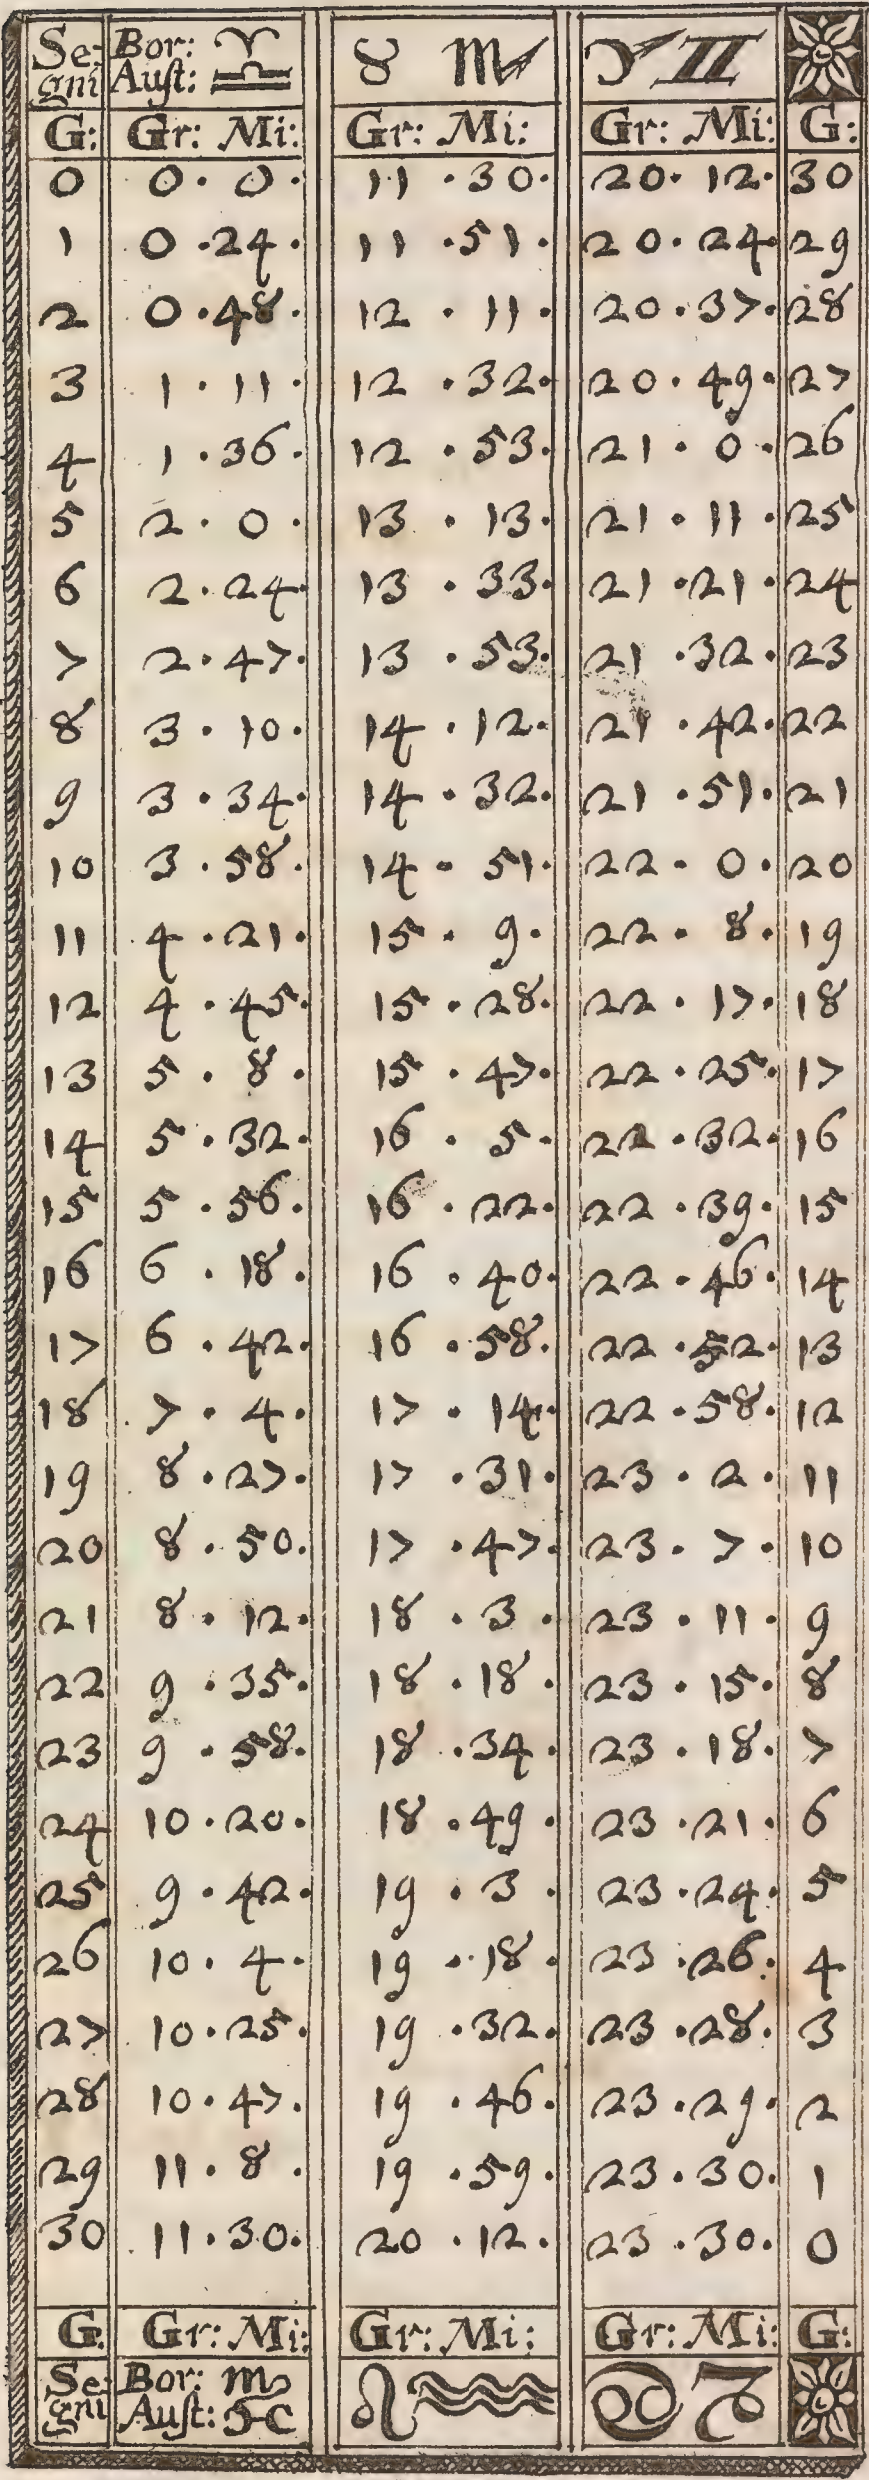 Segni Bor: ♈ Auſt: ♎ ♉ ♏ ♐ ♊
G: Gr: Mi: Gr: Mi: Gr: Mi: G:
0 0 · 0 · 11 · 30 · 20 · 12 · 30
1 0 · 24 · 11 · 51 · 20 · 24 · 29
2 0 · 48 · 12 · 11 · 20 · 37 · 28
3 1 · 11 · 12 · 32 · 20 · 49 · 27
4 1 · 36 · 12 · 53 · 21 · 0 · 26
5 2 · 0 · 13 · 13 · 21 · 11 · 25
6 2 · 24 · 13 · 33 · 21 · 21 · 24
7 2 · 47 · 13 · 53 · 21 · 32 · 23
8 3 · 10 · 14 · 12 · 21 · 42 · 22
9 3 · 34 · 14 · 32 · 21 · 51 · 21
10 3 · 58 · 14 · 51 · 22 · 0 · 20
11 4 · 21 · 15 · 9 · 22 · 8 · 19
12 4 · 45 · 15 · 28 · 22 · 17 · 18
13 5 · 8 · 15 · 47 · 22 · 25 · 17
14 5 · 32 · 16 · 5 · 22 · 32 · 16
15 5 · 56 · 16 · 22 · 22 · 39 · 15
16 6 · 18 · 16 · 40 · 22 · 46 · 14
17 6 · 42 · 16 · 58 · 22 · 52 · 13
18 7 · 4 · 17 · 14 · 22 · 58 · 12
19 8 · 27 · 17 · 31 · 23 · 2 · 11
20 8 · 50 · 17 · 47 · 23 · 7 · 10
21 8 · 12 · 18 · 3 · 23 · 11 · 9
22 9 · 35 · 18 · 18 · 23 · 15 · 8
23 9 · 58 · 18 · 34 · 23 · 18 · 7
24 10 · 20 · 18 · 49 · 23 · 21 · 6
25 9 · 42 · 19 · 3 · 23 · 24 · 5
26 10 · 4 · 19 · 18 · 23 · 26 · 4
27 10 · 25 · 19 · 32 · 23 · 28 · 3
28 10 · 47 · 19 · 46 · 23 · 29 · 2
29 11 · 8 · 19 · 59 · 23 · 30 · 1
30 11 · 30 · 20 · 12 · 23 · 30 · 0
G: Gr: Mi: Gr: Mi: Gr: Mi: G:
Segni Bor: ♍ Auſt: ♓ ♌ ♒ ♋ ♑